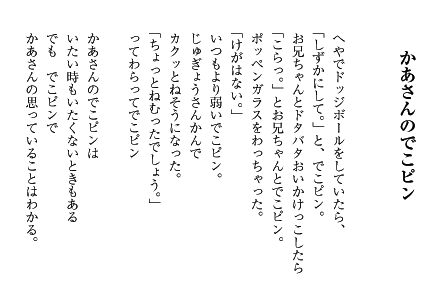 かあさんのでこピン
へやでドッジボールをしていたら、
「しずかにして。」と、でこピン。
お兄ちゃんとドタバタおいかけっこしたら
「こらっ。」とお兄ちゃんとでこピン。
ポッペンガラスをわっちゃった。
「けがはない。」
いつもより弱いでこピン。
じゅぎょうさんかんで
カクッとねそうになった。
「ちょっとねむったでしょう。」
ってわらってでこピン
かあさんのでこピンは
いたい時もいたくないときもある
でも　でこピンで
かあさんの思っていることはわかる。